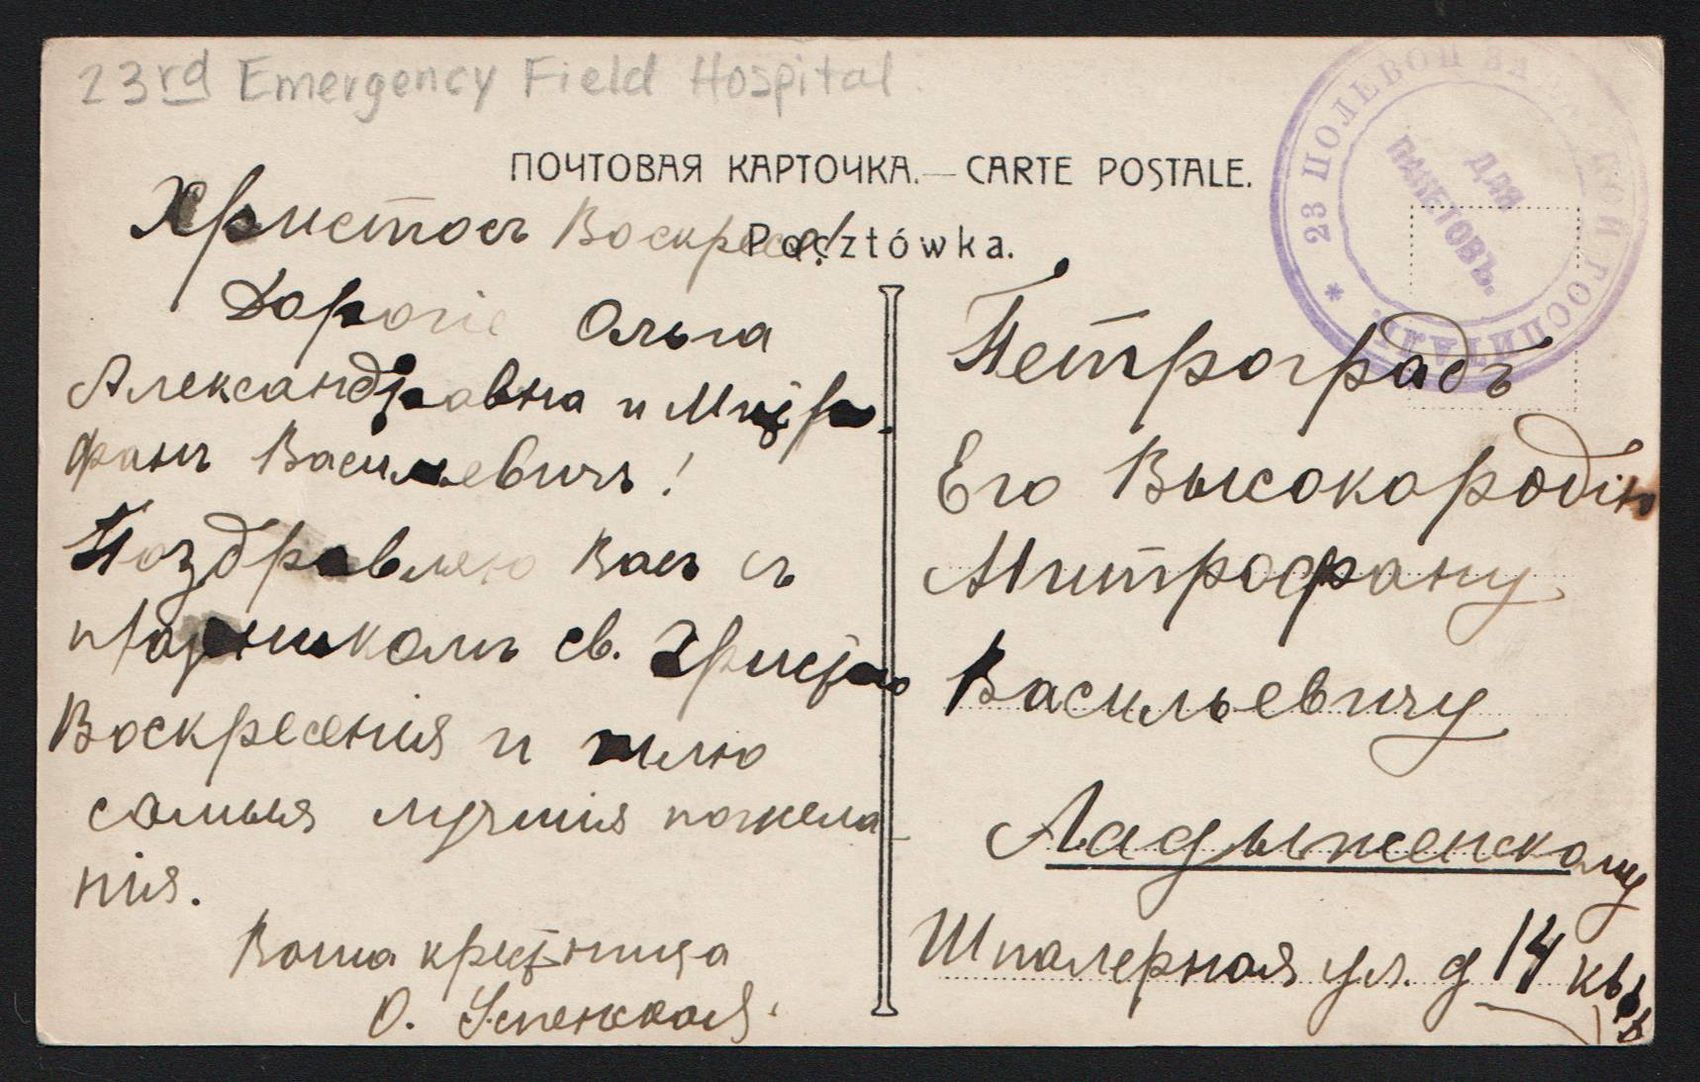 23rd Emergency Field Hospital.
ПОЧТОВАЯ КАРТОЧКА.— CARTE POSTALE.
Pocztówka.
23 ПОЛЕВОЙ ЗА ГОСПИТАЛЬ.
*
ДЛЯ
ПАКЕТОВЪ.
Христосъ Воскресе!
Дорогіе Ольга
Александровна и Митро-
фанъ Васильевичъ!
Поздравляю Васъ съ
праздникомъ св. Христово
Воскресенія и шлю
самыя лучшія пожела-
нія.
Ваша крестница
О. Успенская.
Петроградъ
Его Высокородію
Митрофану
Васильевичу
Ладыженскому
Шпалерная ул. д 14 кв